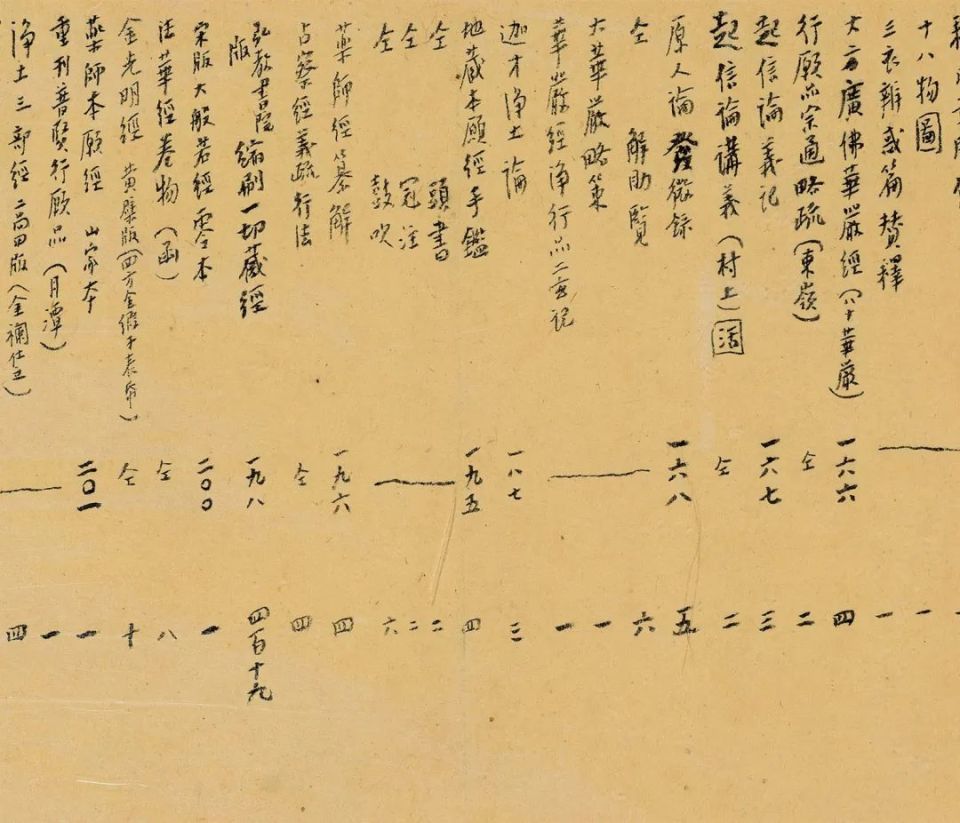 十八物圖 一
三衣辨惑篇賛釋 一
大方廣佛華嚴經(八十華嚴) 一六六 四
行願品宗通略疏(東嶺) 仝 二
起信論義記 一六七 三
起信論講義(村上)活 仝 二
原人論發微錄 一六八 五
仝 解助覽 六
大華嚴略策 一
華嚴經淨行品二玄記 一
迦才淨土論 一八七 三
地藏本願經手鑑 一九五 四
仝 頭書 二
仝 冠注 二
仝 鼓吹 六
藥師經纂解 一九六 四
占察經義疏行法 仝 四
弘教書院版 縮刷一切藏經 一九八 四百十九
宋版大般若經零本 二〇〇 一
法華經卷物(函) 仝 八
金光明經 黃檗版 仝 十
藥師本願經 山家本 二〇一 一
重刊普賢行願品(月潭) 一
淨土三部經 高田版 四